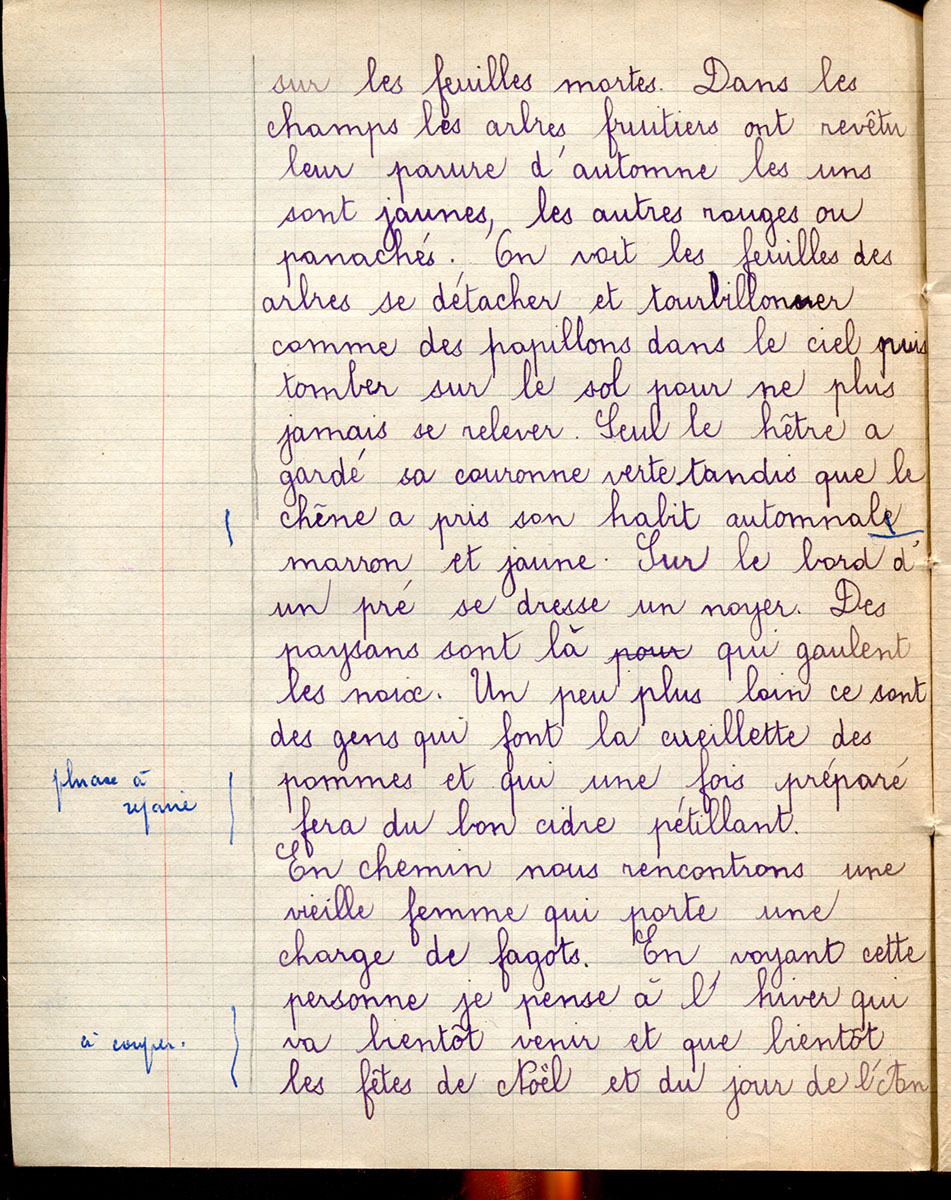 sur les feuilles mortes. Dans les
champs les arbres fruitiers ont revêtu
leur parure d'automne les uns
sont jaunes, les autres rouges ou
panachés. On voit les feuilles des
arbres se détacher et tourbillonner
comme des papillons dans le ciel puis
tomber sur le sol pour ne plus
jamais se relever. Seul le hêtre a
gardé sa couronne verte tandis que le
chêne a pris son habit automnale
marron et jaune. Sur le bord d'
un pré se dresse un noyer. Des
paysans sont là pour qui gaulent
les noix. Un peu plus loin ce sont
des gens qui font la cueillette des
phrase à
pommes et qui une fois préparé
refaire
fera du bon cidre pétillant.
En chemin nous rencontrons une
vieille femme qui porte une
charge de fagots. En voyant cette
personne je pense à l'hiver qui
à couper.
va bientôt venir et que bientôt
les fêtes de Noël et du jour de l'An